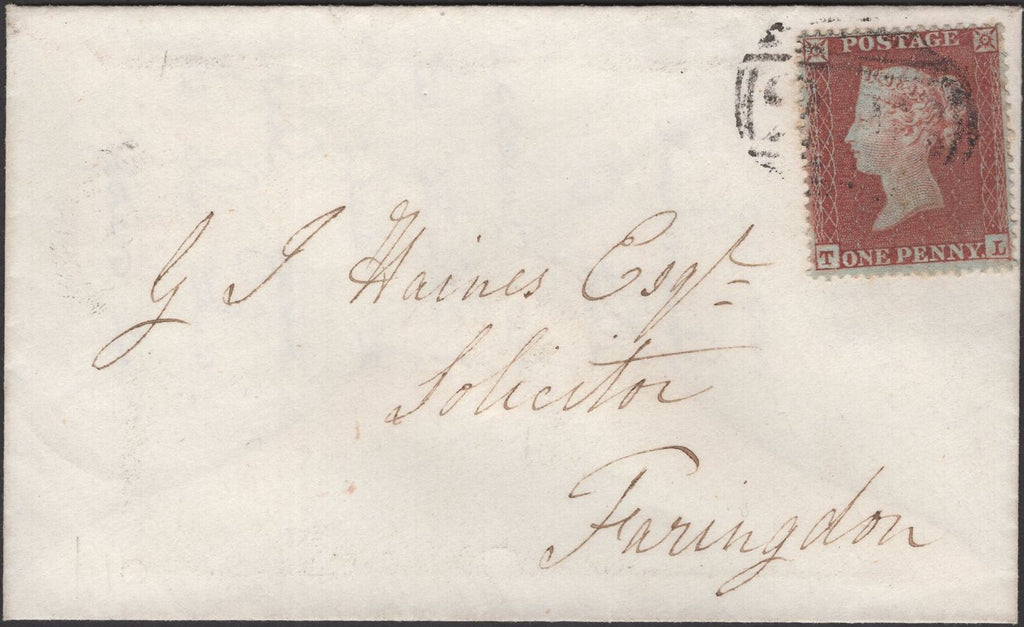 POSTAGE
T ONE PENNY. L
G J Haines Esqr
Solicitor
Faringdon